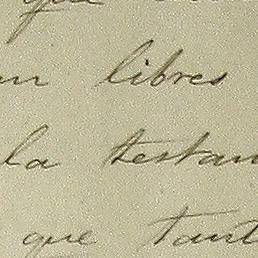 que
libres
la testam
que tant